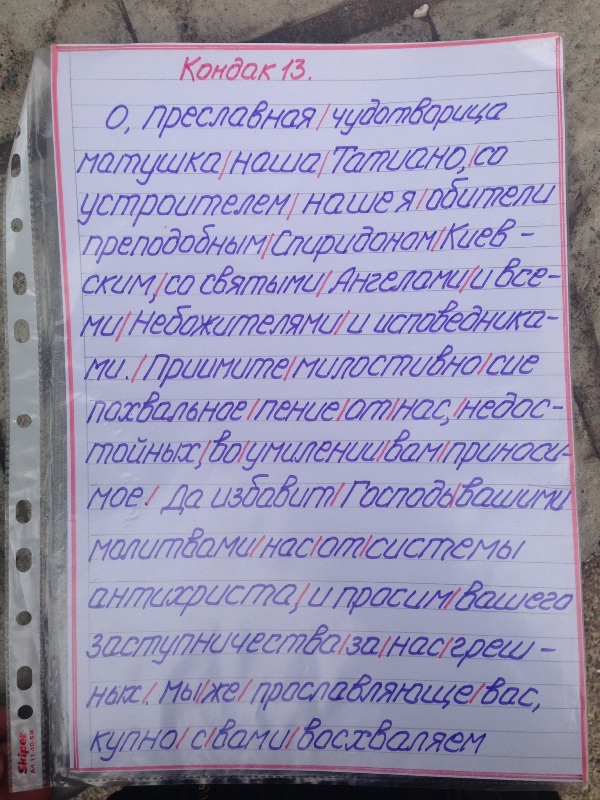 Кондак 13.
О, преславная/чудотварица
матушка/наша/Татиано,/со
устроителем/нашея/обители
преподобным/Спиридоном/Киев-
ским,/со святыми/Ангелами/и все-
ми/Небожителями/и исповедника-
ми./Приимите/милостивно/сие
похвальное/пение/от/нас,/недос-
тойных,/во/умилении/вам/приноси-
мое!/Да избавит/Господь/вашими
молитвами/нас/от/системы
антихриста,/и просим/вашего
заступничества/за/нас/греш-
ных/. Мы/же/прославляюще/вас,
купно/с/вами/восхваляем
Skiper